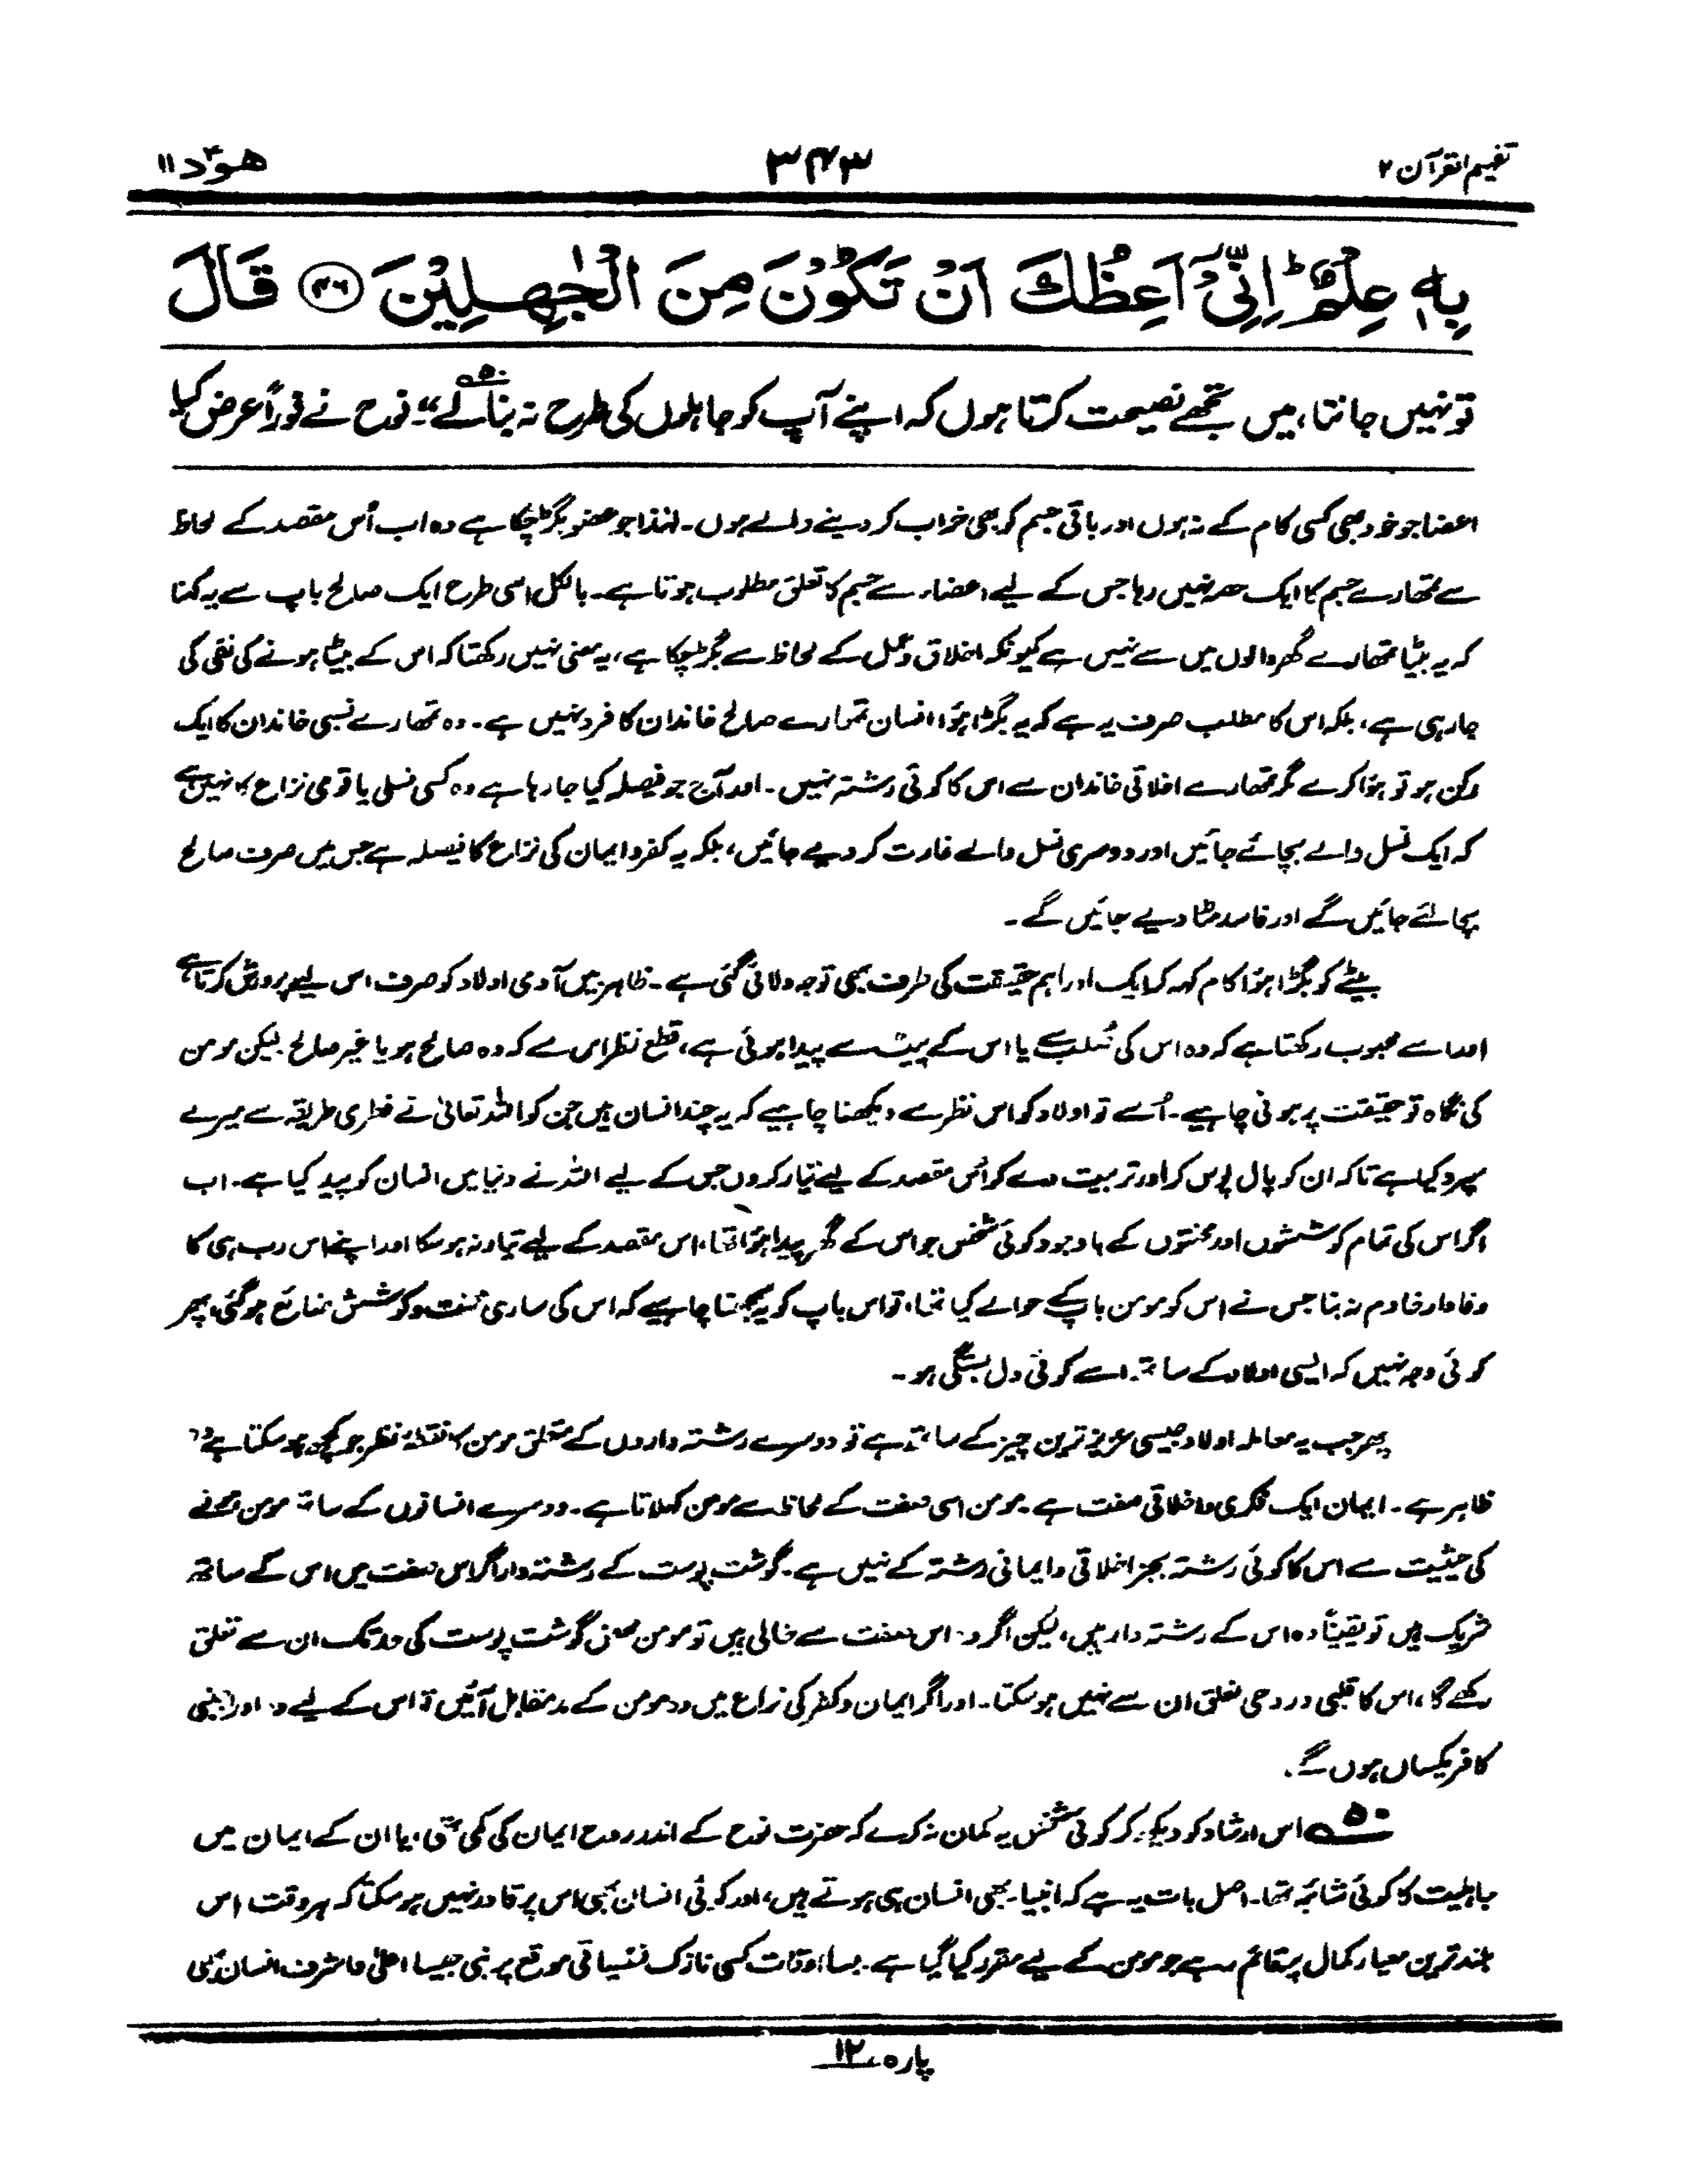 تفہیم القرآن ۲
۳۴۳
ھود ۱۱
بِهٖ عِلْمٌ ؕ اِنِّیْۤ اَعِظُكَ اَنْ تَكُوْنَ مِنَ الْجٰهِلِیْنَ ﴿۴۶﴾ قَالَ
تو نہیں جانتا، میں تجھے نصیحت کرتا ہوں کہ اپنے آپ کو جاہلوں کی طرح نہ بنا لے۵۰“۔ نوح نے فوراً عرض کیا
اعضا جو خود بھی کسی کام کے نہ ہوں اور باقی جسم کو بھی خراب کر دینے والے ہوں۔ لہٰذا جو عضو بگڑ چکا ہے وہ اب اُس مقصد کے لحاظ
سے تمھارے جسم کا ایک حصہ نہیں رہا جس کے لیے اعضاء سے جسم کا تعلق مطلوب ہوتا ہے۔ بالکل اسی طرح ایک صالح باپ سے یہ کہنا
کہ یہ بیٹا تمھارے گھر والوں میں سے نہیں ہے کیونکہ اخلاق و عمل کے لحاظ سے بگڑ چکا ہے، یہ معنی نہیں رکھتا کہ اس کے بیٹا ہونے کی نفی کی
جا رہی ہے، بلکہ اس کا مطلب صرف یہ ہے کہ یہ بگڑا ہوا انسان تمہارے صالح خاندان کا فرد نہیں ہے۔ وہ تمھارے نسبی خاندان کا ایک
رکن ہو تو ہوا کرے مگر تمھارے اخلاقی خاندان سے اس کا کوئی رشتہ نہیں۔ اور آج جو فیصلہ کیا جا رہا ہے وہ کسی نسلی یا قومی نزاع کا نہیں ہے
کہ ایک نسل والے بچائے جائیں اور دوسری نسل والے غارت کر دیے جائیں، بلکہ یہ کفر و ایمان کی نزاع کا فیصلہ ہے جس میں صرف صالح
بچائے جائیں گے اور فاسد مٹا دیے جائیں گے۔
بیٹے کو بگڑا ہوا کام کہہ کر ایک اور اہم حقیقت کی طرف بھی توجہ دلائی گئی ہے۔ ظاہر بیں آدمی اولاد کو صرف اس لیے پرورش کرتا ہے
اور اسے محبوب رکھتا ہے کہ وہ اس کی صُلب سے یا اس کے پیٹ سے پیدا ہوئی ہے، قطع نظر اس سے کہ وہ صالح ہو یا غیر صالح۔ لیکن مومن
کی نگاہ تو حقیقت پر ہونی چاہیے۔ اُسے تو اولاد کو اس نظر سے دیکھنا چاہیے کہ یہ چند انسان ہیں جن کو اللہ تعالیٰ نے فطری طریقہ سے میرے
سپرد کیا ہے تاکہ ان کو پال پوس کر اور تربیت دے کر اُس مقصد کے لیے تیار کروں جس کے لیے اللہ نے دنیا میں انسان کو پیدا کیا ہے۔ اب
اگر اس کی تمام کوششوں اور محنتوں کے باوجود کوئی شخص جو اس کے گھر پیدا ہوا تھا، اس مقصد کے لیے تیار نہ ہو سکا اور اپنے اس رب ہی کا
وفادار خادم نہ بنا جس نے اس کو مومن باپ کے حوالے کیا تھا، تو اس باپ کو یہ سمجھنا چاہیے کہ اس کی ساری محنت و کوشش ضائع ہو گئی، پھر
کوئی وجہ نہیں کہ ایسی اولاد کے ساتھ اسے کوئی دل بستگی ہو۔
پھر جب یہ معاملہ اولاد جیسی عزیز ترین چیز کے ساتھ ہے تو دوسرے رشتہ داروں کے متعلق مومن کا نقطۂ نظر جو کچھ ہو سکتا ہے وہ
ظاہر ہے۔ ایمان ایک فکری و اخلاقی صفت ہے۔ مومن اسی صفت کے لحاظ سے مومن کہلاتا ہے۔ دوسرے انسانوں کے ساتھ مومن ہونے
کی حیثیت سے اس کا کوئی رشتہ بجز اخلاقی و ایمانی رشتہ کے نہیں ہے۔ گوشت پوست کے رشتہ دار اگر اس صفت میں اس کے ساتھ
شریک ہیں تو یقیناً وہ اس کے رشتہ دار ہیں، لیکن اگر وہ اس صفت سے خالی ہیں تو مومن محض گوشت پوست کی حد تک ان سے تعلق
رکھے گا، اس کا قلبی و روحی تعلق ان سے نہیں ہو سکتا۔ اور اگر ایمان و کفر کی نزاع میں وہ مومن کے مد مقابل آئیں تو اس کے لیے وہ اور اجنبی
کافر یکساں ہوں گے۔
۵۰ اس ارشاد کو دیکھ کر کوئی شخص یہ گمان نہ کرے کہ حضرت نوح کے اندر روح ایمان کی کمی تھی، یا ان کے ایمان میں
جاہلیت کا کوئی شائبہ تھا۔ اصل بات یہ ہے کہ انبیاء بھی انسان ہی ہوتے ہیں، اور کوئی انسان بھی اس پر قادر نہیں ہو سکتا کہ ہر وقت اس
بلند ترین معیار کمال پر قائم رہے جو مومن کے لیے مقرر کیا گیا ہے۔ بسا اوقات کسی نازک نفسیاتی موقع پر نبی جیسا اعلیٰ و اشرف انسان بھی
پارہ ۱۲